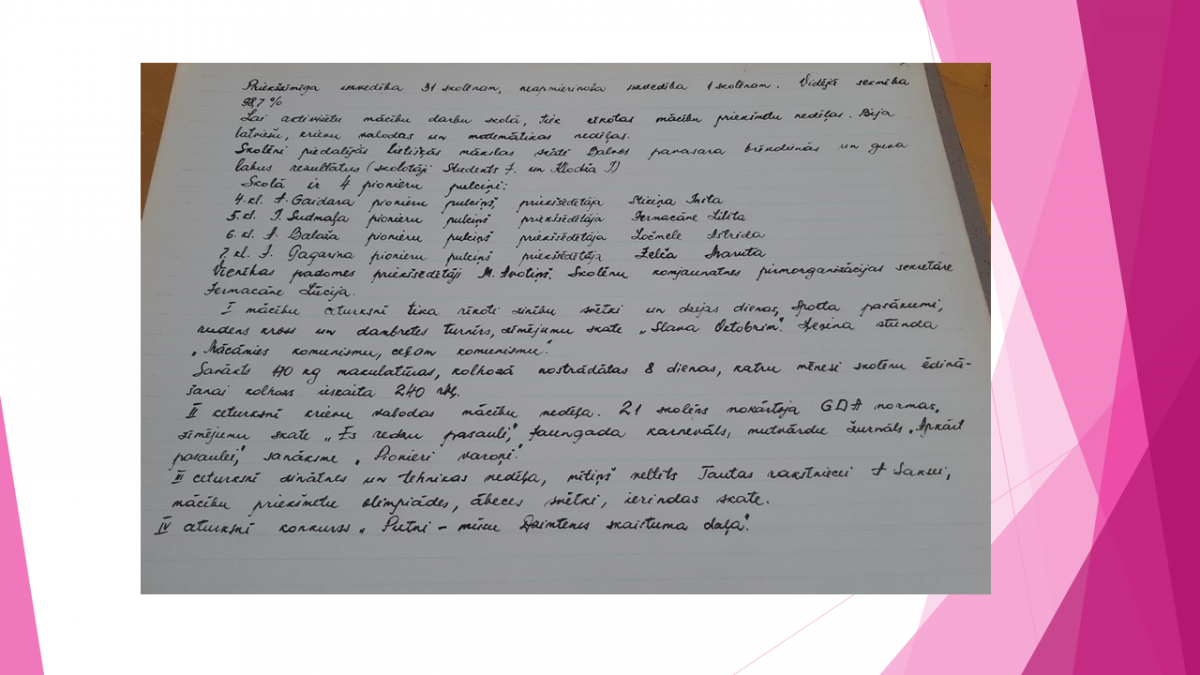 Priekšzīmīga uzvedība 31 skolēnam, neapmierinoša uzvedība 1 skolēnam. Vidējā sekmība
98,7 %
Lai aktivizētu mācību darbu skolā, tiek rīkotas mācību priekšmetu nedēļas. Bija
latviešu, krievu valodas un matemātikas nedēļas.
Skolēni piedalījās lietišķās mākslas skatē Balvos pavasara brīvdienās un guva
labus rezultātus (skolotāji Students J. un I)
Skolā ir 4 pionieru pulciņi:
4. kl. A. Gaidara pionieru pulciņš priekšsēdētāja Inita
5. kl. J. Sudmaļa pionieru pulciņš priekšsēdētāja Jermacāne Lilita
6. kl. A. Baloža pionieru pulciņš priekšsēdētāja Ločmele Astrīda
7. kl. J. Gagarina pionieru pulciņš priekšsēdētāja Zelča Maruta
Vienības padomes priekšsēdētājs M. Avotiņš. Skolēnu komjaunatnes pirmorganizācijas sekretāre
Jermacāne Lūcija.
I mācību ceturksnī tika rīkoti zinību svētki un dzejas dienas, Spotta pasākumi,
rudens kross un dambretes turnīrs, zīmējumu skate „Slava Oktobrim". Ļeņina stunda
„Mācāmies komunismu, ceļam komunismu".
Savākts 170 kg makulatūras, kolhozā nostrādātas 8 dienas, katru mēnesi skolēnu ēdinā-
šanai kolhozs ieskaita 240 rbļ.
II ceturksnī krievu valodas mācību nedēļa. 21 skolēns nokārtoja GDA normas,
zīmējumu skate „Es redzu pasauli", Jaungada karnevāls, mutvārdu žurnāls „Apkārt
pasaulei", sanāksme „Pionieri varoņi".
III ceturksnī zinātnes un tehnikas nedēļa, mītiņš veltīts Tautas rakstniecei A Saksei,
mācību priekšmetu olimpiādes, ābeces svētki, ierindas skate.
IV ceturksnī konkurss „Putni - mūsu Dzimtenes skaistuma daļa".